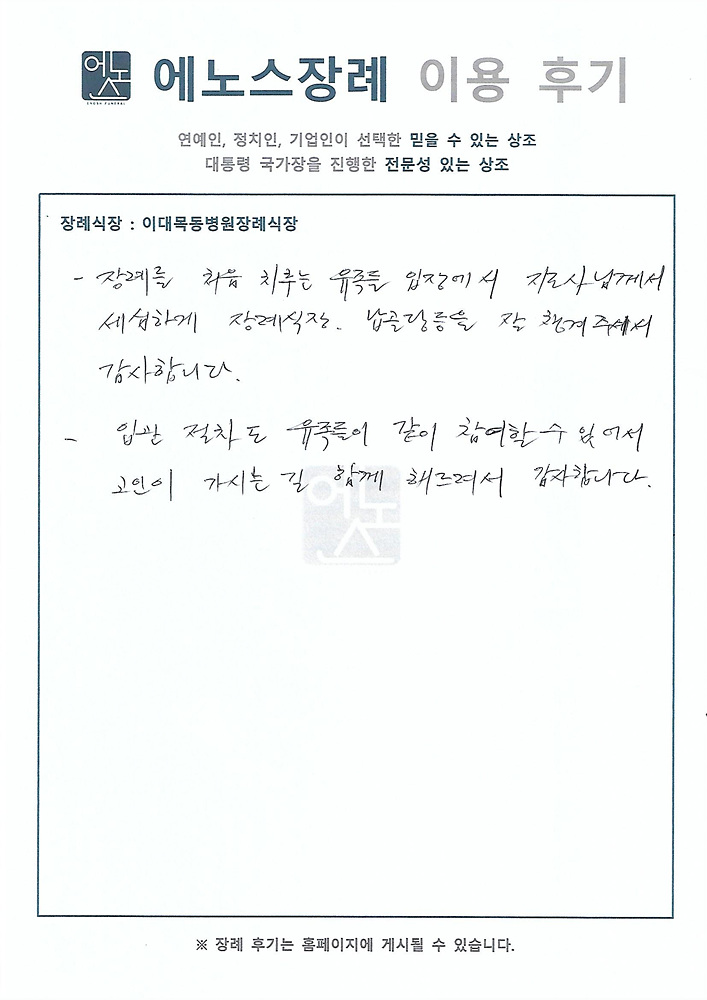 에노스
ENOSH FUNERAL
에노스장례 이용 후기
연예인, 정치인, 기업인이 선택한 믿을 수 있는 상조
대통령 국가장을 진행한 전문성 있는 상조
장례식장 : 이대목동병원장례식장
- 장례를 처음 치루는 유족들 입장에서 지도사님께서
세심하게 장례식장. 납골당등을 잘 챙겨주셔서
감사합니다.
- 입관 절차도 유족들이 같이 참여할 수 있어서
고인이 가시는 길 함께 해드려서 감사합니다.
에노스
※ 장례 후기는 홈페이지에 게시될 수 있습니다.